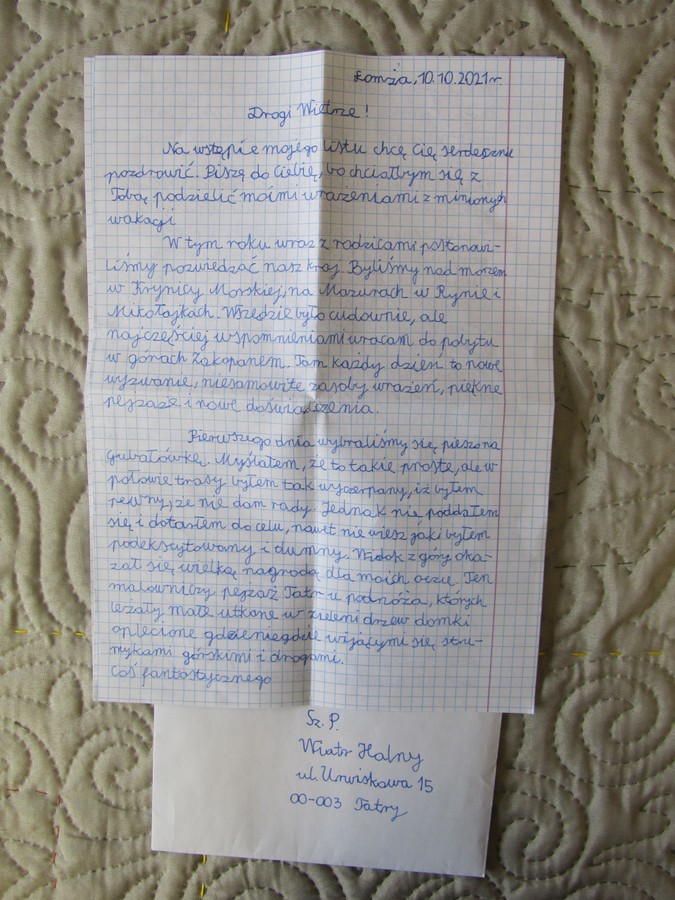 Łomża, 10.10.2021r.
Drogi Wietrze!
Na wstępie mojego listu chcę Cię serdecznie
pozdrowić. Piszę do Ciebie, bo chciałbym się z
Tobą podzielić moimi wrażeniami z minionych
wakacji
W tym roku wraz z rodzicami postanowi-
liśmy pozwiedzać nasz kraj. Byliśmy nad morzem
w Krynicy Morskiej, na Mazurach w Rynie i
Mikołajkach. Wszędzie było cudownie, ale
najczęściej wspomnieniami wracam do pobytu
w górach Zakopanem. Tam każdy dzień to nowe
wyzwanie, niesamowite zasoby wrażeń, piękne
pejzaże i nowe doświadczenia.
Pierwszego dnia wybraliśmy się pieszo na
Gubałówkę. Myślałem, że to takie proste, ale w
połowie trasy byłem tak wyczerpany, iż byłem
pewny, że nie dam rady. Jednak nie poddałem
się i dotarłem do celu, nawet nie wiesz jaki byłem
podekscytowany i dumny. Widok z góry oka-
zał się wielką nagrodą dla moich oczu. Ten
malowniczy pejzaż Tatr u podnóża, których
leżały małe utkane w zieleni drzew domki
oplecione gdzieniegdzie wijącymi się stru-
mykami górskimi i drogami.
Coś fantastycznego
Sz. P.
Wiatr Halny
ul. Urwiskowa 15
00-003 Tatry